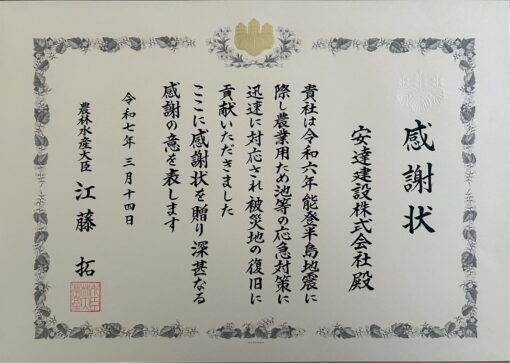 感謝状
安達建設株式会社 殿
貴社は令和六年能登半島地震に
際し農業用ため池等の応急対策に
迅速に対応され被災地の復旧に
貢献いただきました
ここに感謝状を贈り深甚なる
感謝の意を表します
令和七年 三月十四日
農林水産大臣 江藤 拓